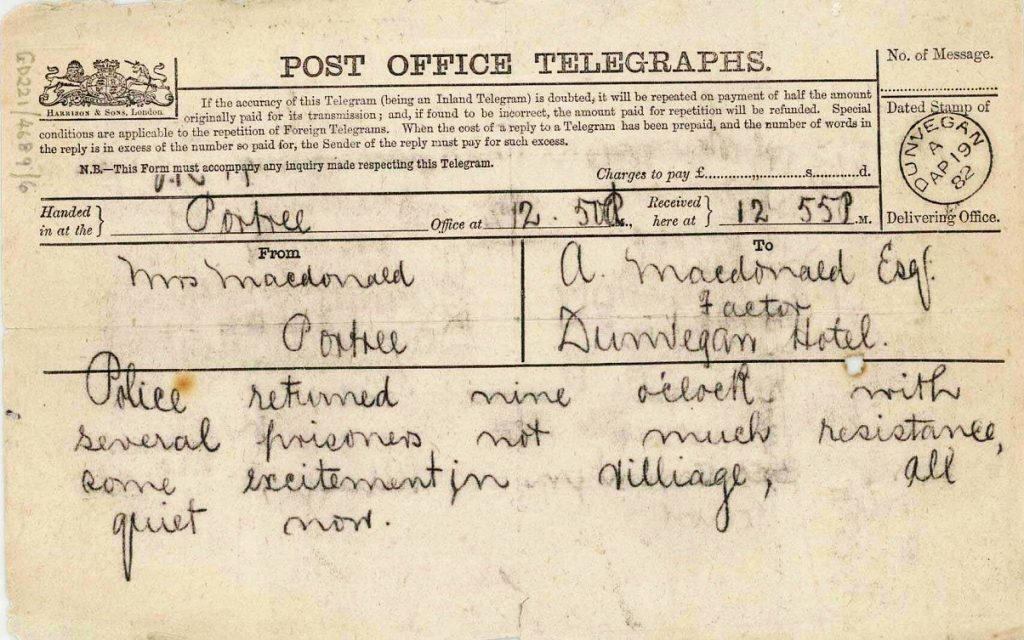 GD221/4689/6
HARRISON & SONS, LONDON.
POST OFFICE TELEGRAPHS.
No. of Message.
If the accuracy of this Telegram (being an Inland Telegram) is doubted, it will be repeated on payment of half the amount
originally paid for its transmission; and, if found to be incorrect, the amount paid for repetition will be refunded. Special
conditions are applicable to the repetition of Foreign Telegrams. When the cost of a reply to a Telegram has been prepaid, and the number of words in
the reply is in excess of the number so paid for, the Sender of the reply must pay for such excess.
N.B.—This Form must accompany any inquiry made respecting this Telegram.
Charges to pay £ s. d.
Dated Stamp of
DUNVEGAN
A
AP 19
82
Delivering Office.
Handed in at the } Portree Office at 12.50 P M., Received here at } 12 55 P .M.
From
Mrs Macdonald
Portree
To
A. Macdonald Esq.
Factor
Dunvegan Hotel.
Police returned nine o'clock with
several prisoners not much resistance,
some excitement in villiage, all
quiet now.